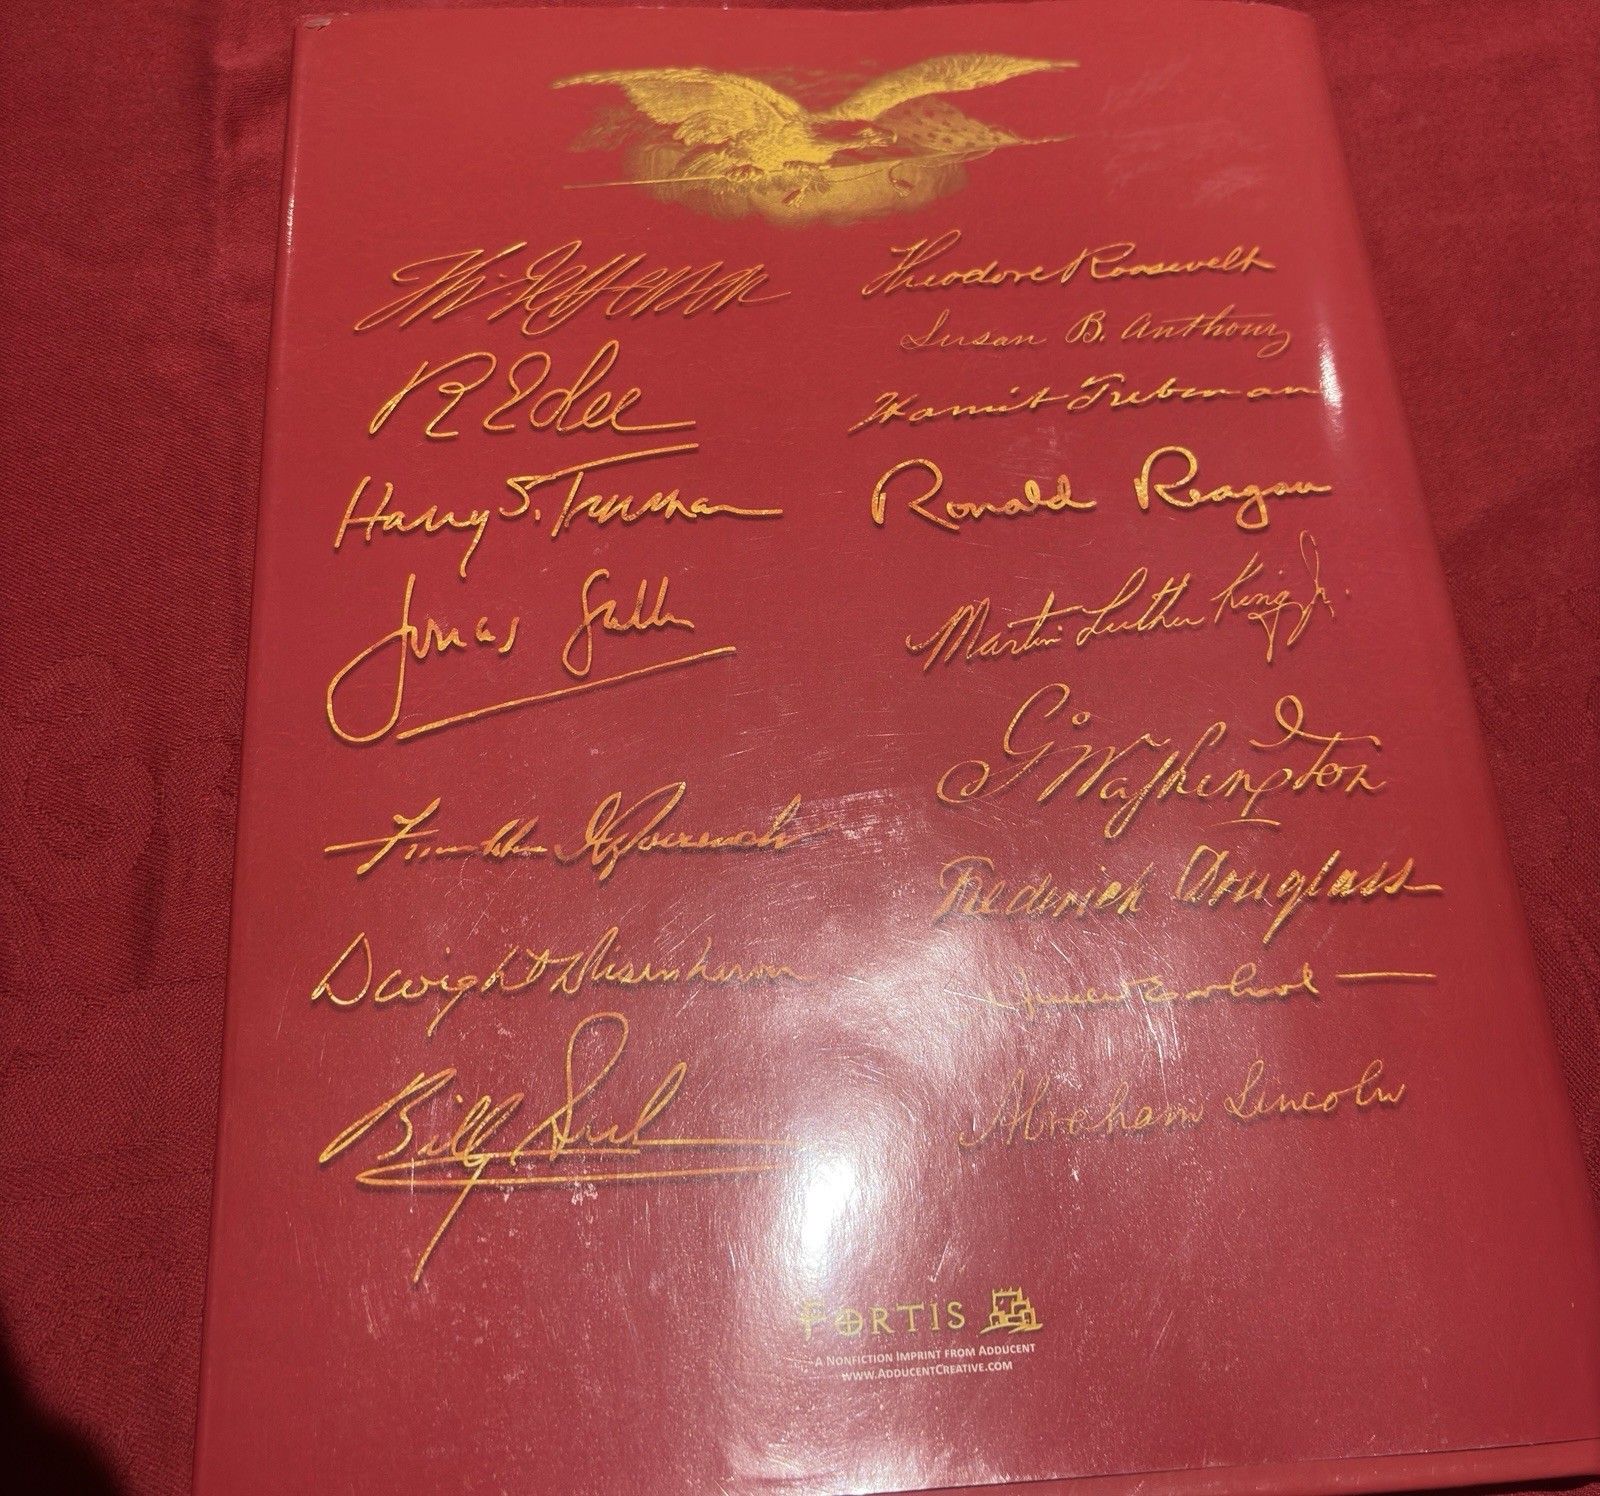 Th: Jefferson
R E Lee
Harry S. Truman
Jonas Salk
Franklin D Roosevelt
Dwight D Eisenhower
Billy
Theodore Roosevelt
Susan B. Anthony
Harriet Tubman
Ronald Reagan
Martin Luther King Jr.
G Washington
Frederick Douglass
Amelia Earhart
Abraham Lincoln
FORTIS
A NONFICTION IMPRINT FROM ADDUCENT
WWW.ADDUCENTCREATIVE.COM